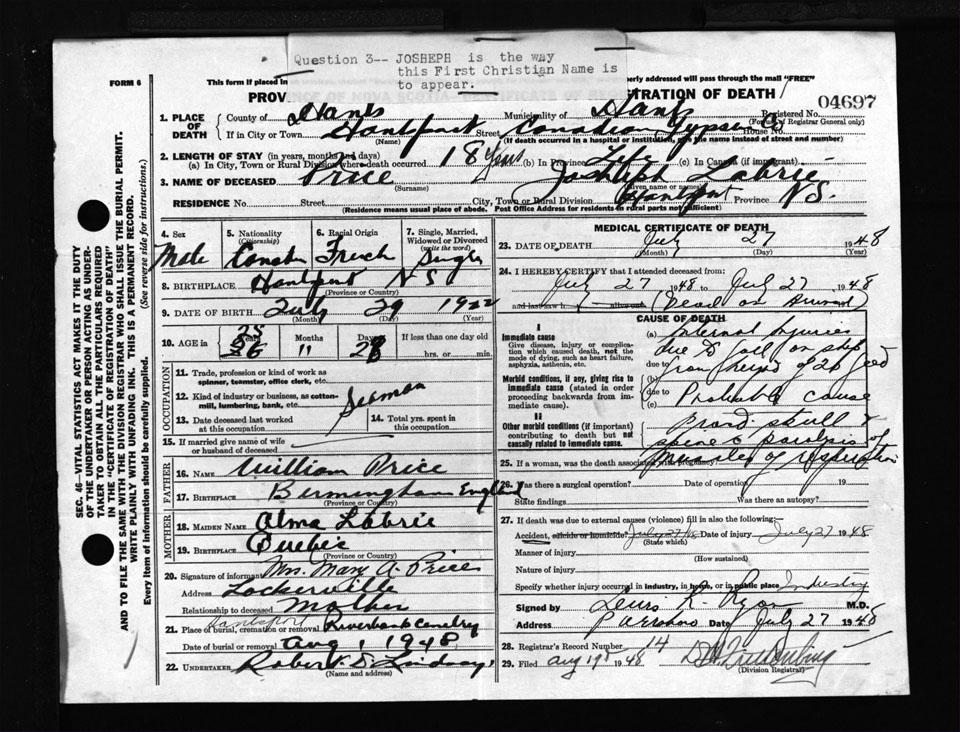 Question 3-- JOSHEPH is the way
this First Christian Name is
to appear.
FORM 6
This form if placed in
perly addressed will pass through the mail "FREE"
PROV
TRATION OF DEATH
04697
1. PLACE OF DEATH
County of Hants Municipality of Hants Registered No.
(For use of Registrar General only)
If in City or Town Hantsport Street Canadian Gypsum House No.
(Name) (If death occurred in a hospital or institution, give the name instead of street and number)
2. LENGTH OF STAY (in years, months and days)
(a) In City, Town or Rural Division where death occurred 18 years (b) In Province Life (c) In Canada (if immigrant)
3. NAME OF DECEASED Price Josheph Labrie
(Surname) (Given name or names)
RESIDENCE No. Street City, Town or Rural Division Hantsport Province N.S.
(Residence means usual place of abode. Post Office Address for residents in rural parts not sufficient)
SEC. 46—VITAL STATISTICS ACT MAKES IT THE DUTY
OF THE UNDERTAKER OR PERSON ACTING AS UNDER-
TAKER TO OBTAIN ALL THE PARTICULARS REQUIRED
IN THE "CERTIFICATE OF REGISTRATION OF DEATH"
AND TO FILE THE SAME WITH THE DIVISION REGISTRAR WHO SHALL ISSUE THE BURIAL PERMIT.
WRITE PLAINLY WITH UNFADING INK. THIS IS A PERMANENT RECORD.
Every item of Information should be carefully supplied. (See reverse side for instructions.)
4. Sex
Male
5. Nationality
(Citizenship)
6. Racial Origin
French
7. Single, Married,
Widowed or Divorced
(write the word)
Single
8. BIRTHPLACE Hantsport N S
(Province or Country)
9. DATE OF BIRTH July 29 1922
(Month) (Day) (Year)
10. AGE in Years Months Days If less than one day old
25 11 28 hrs. or min.
OCCUPATION
11. Trade, profession or kind of work as
spinner, teamster, office clerk, etc.
12. Kind of industry or business, as cotton-
mill, lumbering, bank, etc. Seaman
13. Date deceased last worked
at this occupation
14. Total yrs. spent in
this occupation
15. If married give name of wife
or husband of deceased
FATHER
16. NAME William Price
17. BIRTHPLACE Birmingham England
(Province or Country)
MOTHER
18. MAIDEN NAME Alma Labrie
19. BIRTHPLACE Quebec
(Province or Country)
20. Signature of informant Mrs. Mary A. Price
Address Lockerville
Relationship to deceased Mother
Hantsport
21. Place of burial, cremation or removal Riverbank Cemetery
Date of burial or removal Aug 1 1948
22. UNDERTAKER Robert D. Lindsay
(Name and address)
MEDICAL CERTIFICATE OF DEATH
23. DATE OF DEATH July 27 1948
(Month) (Day) (Year)
24. I HEREBY CERTIFY that I attended deceased from:
July 27 1948 to July 27 1948
and last saw h alive on (Dead on arrival)
CAUSE OF DEATH
I
Immediate cause
Give disease, injury or complica-
tion which caused death, not the
mode of dying, such as heart failure,
asphyxia, asthenia, etc.
(a) Internal Injuries
due to fall on ship
from height of 26 feet
Morbid conditions, if any, giving rise to
immediate cause (stated in order
proceeding backwards from im-
mediate cause).
(b)
due to Probable cause
(c)
II
Other morbid conditions (if important)
contributing to death but not
causally related to immediate cause.
Fract. skull &
spine & paralysis of
muscles of respiration
25. If a woman, was the death associated with pregnancy?
26. Was there a surgical operation? Date of operation 19
State findings Was there an autopsy?
27. If death was due to external causes (violence) fill in also the following:—
Accident, suicide or homicide? July 27/48 Date of injury July 27 1948
(State which)
Manner of injury
(How sustained)
Nature of injury
Specify whether injury occurred in industry, in home, or in public place Industry
Signed by Lewis R. Ryan M.D.
Address Parrsboro Date July 27 1948
28. Registrar's Record Number 14
29. Filed Aug 19 1948
(Division Registrar)